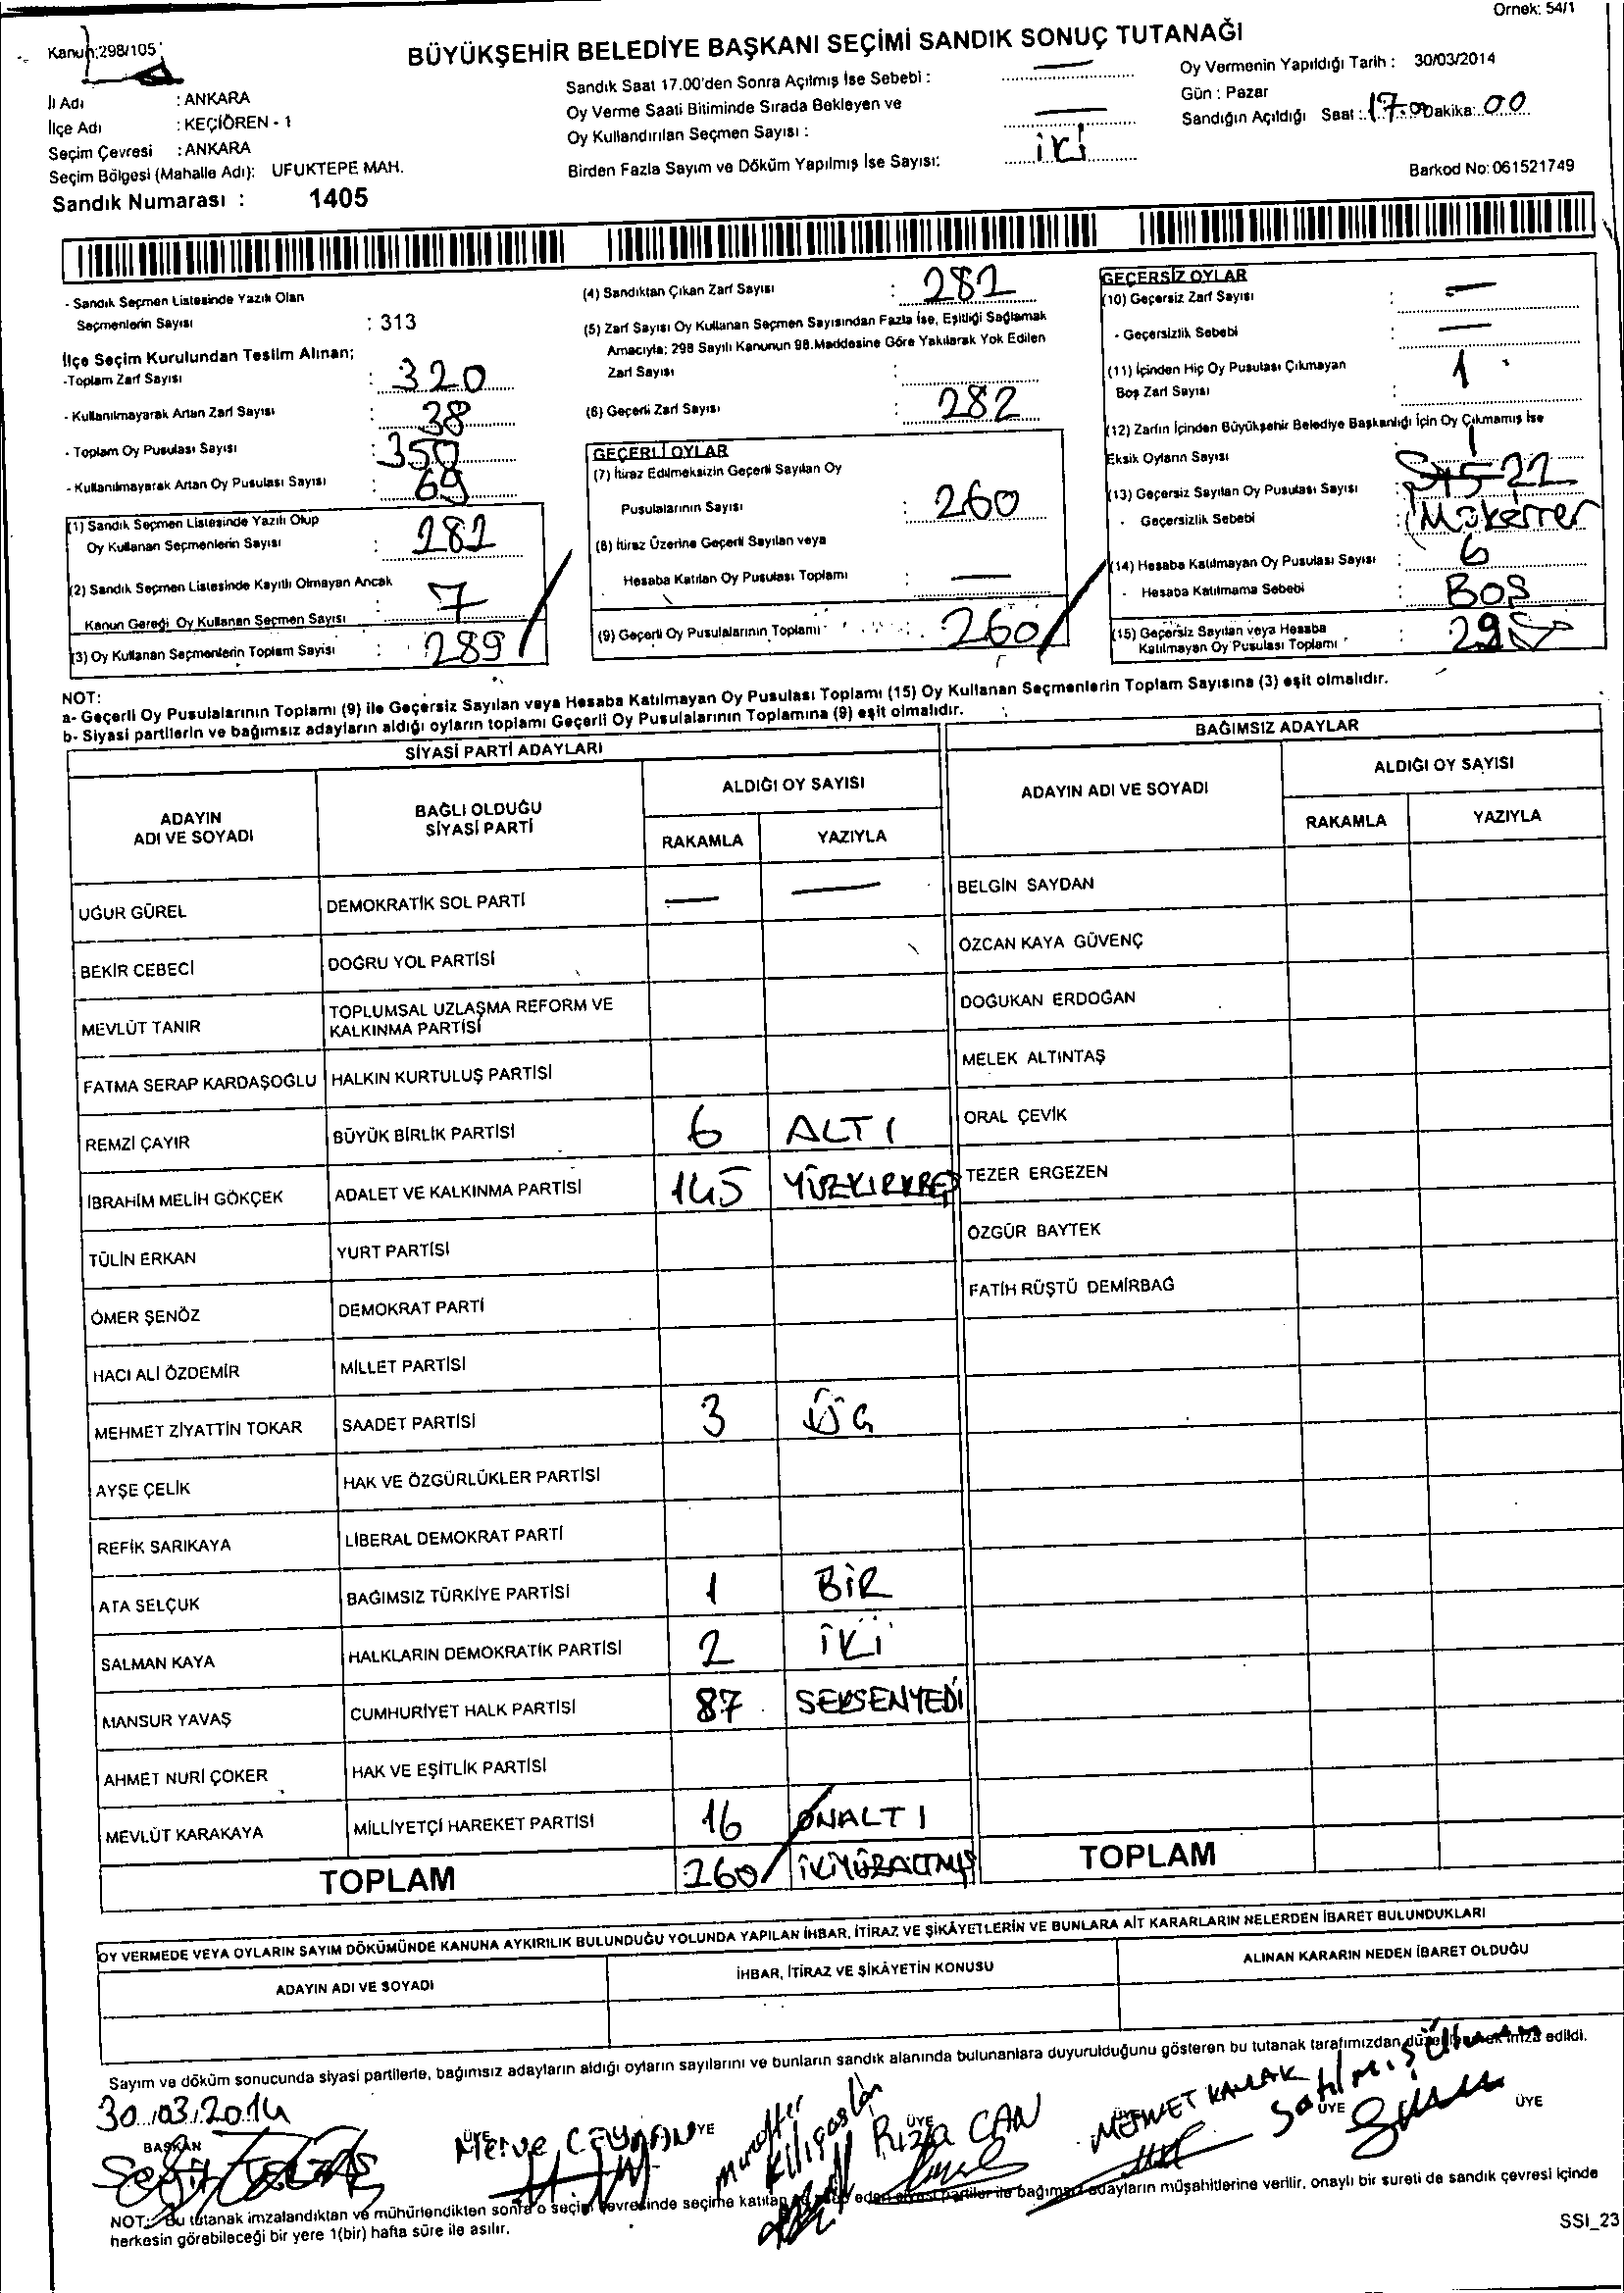 Örnek: 54/1
Kanun:298/105
BÜYÜKŞEHİR BELEDİYE BAŞKANI SEÇİMİ SANDIK SONUÇ TUTANAĞI
İl Adı : ANKARA
İlçe Adı : KEÇİÖREN - 1
Seçim Çevresi : ANKARA
Seçim Bölgesi (Mahalle Adı): UFUKTEPE MAH.
Sandık Numarası : 1405
Sandık Saat 17.00'den Sonra Açılmış İse Sebebi : —
Oy Verme Saati Bitiminde Sırada Bekleyen ve
Oy Kullandırılan Seçmen Sayısı : —
Birden Fazla Sayım ve Döküm Yapılmış İse Sayısı: iki
Oy Vermenin Yapıldığı Tarih : 30/03/2014
Gün : Pazar
Sandığın Açıldığı Saat : 17.00 Dakika: 00
Barkod No: 061521749
- Sandık Seçmen Listesinde Yazılı Olan
Seçmenlerin Sayısı : 313
İlçe Seçim Kurulundan Teslim Alınan;
-Toplam Zarf Sayısı : 320
- Kullanılmayarak Artan Zarf Sayısı : 38
- Toplam Oy Pusulası Sayısı : 350
- Kullanılmayarak Artan Oy Pusulası Sayısı : 69
(1) Sandık Seçmen Listesinde Yazılı Olup
Oy Kullanan Seçmenlerin Sayısı : 282
(2) Sandık Seçmen Listesinde Kayıtlı Olmayan Ancak
Kanun Gereği Oy Kullanan Seçmen Sayısı : 7
(3) Oy Kullanan Seçmenlerin Toplam Sayısı : 289
(4) Sandıktan Çıkan Zarf Sayısı : 282
(5) Zarf Sayısı Oy Kullanan Seçmen Sayısından Fazla İse, Eşitliği Sağlamak
Amacıyla; 298 Sayılı Kanunun 98.Maddesine Göre Yakılarak Yok Edilen
Zarf Sayısı :
(6) Geçerli Zarf Sayısı : 282
GEÇERLİ OYLAR
(7) İtiraz Edilmeksizin Geçerli Sayılan Oy
Pusulalarının Sayısı : 260
(8) İtiraz Üzerine Geçerli Sayılan veya
Hesaba Katılan Oy Pusulası Toplamı : —
(9) Geçerli Oy Pusulalarının Toplamı : 260
GEÇERSİZ OYLAR
(10) Geçersiz Zarf Sayısı : —
- Geçersizlik Sebebi : —
(11) İçinden Hiç Oy Pusulası Çıkmayan
Boş Zarf Sayısı : 1
(12) Zarfın İçinden Büyükşehir Belediye Başkanlığı İçin Oy Çıkmamış İse
Eksik Oyların Sayısı
(13) Geçersiz Sayılan Oy Pusulası Sayısı : 22
- Geçersizlik Sebebi : Mükerrer
(14) Hesaba Katılmayan Oy Pusulası Sayısı : 6
- Hesaba Katılmama Sebebi : BOŞ
(15) Geçersiz Sayılan veya Hesaba
Katılmayan Oy Pusulası Toplamı : 29
NOT:
a- Geçerli Oy Pusulalarının Toplamı (9) ile Geçersiz Sayılan veya Hesaba Katılmayan Oy Pusulası Toplamı (15) Oy Kullanan Seçmenlerin Toplam Sayısına (3) eşit olmalıdır.
b- Siyasi partilerin ve bağımsız adayların aldığı oyların toplamı Geçerli Oy Pusulalarının Toplamına (9) eşit olmalıdır.
SİYASİ PARTİ ADAYLARI
ADAYIN ADI VE SOYADI BAĞLI OLDUĞU SİYASİ PARTİ ALDIĞI OY SAYISI
RAKAMLA YAZIYLA
UĞUR GÜREL DEMOKRATİK SOL PARTİ — —
BEKİR CEBECİ DOĞRU YOL PARTİSİ
MEVLÜT TANIR TOPLUMSAL UZLAŞMA REFORM VE KALKINMA PARTİSİ
FATMA SERAP KARDAŞOĞLU HALKIN KURTULUŞ PARTİSİ
REMZİ ÇAYIR BÜYÜK BİRLİK PARTİSİ 6 ALTI
İBRAHİM MELİH GÖKÇEK ADALET VE KALKINMA PARTİSİ 145 YÜZKIRKBEŞ
TÜLİN ERKAN YURT PARTİSİ
ÖMER ŞENÖZ DEMOKRAT PARTİ
HACI ALİ ÖZDEMİR MİLLET PARTİSİ
MEHMET ZİYATTİN TOKAR SAADET PARTİSİ 3 ÜÇ
AYŞE ÇELİK HAK VE ÖZGÜRLÜKLER PARTİSİ
REFİK SARIKAYA LİBERAL DEMOKRAT PARTİ
ATA SELÇUK BAĞIMSIZ TÜRKİYE PARTİSİ 1 BİR
SALMAN KAYA HALKLARIN DEMOKRATİK PARTİSİ 2 İKİ
MANSUR YAVAŞ CUMHURİYET HALK PARTİSİ 87 SEKSENYEDİ
AHMET NURİ ÇOKER HAK VE EŞİTLİK PARTİSİ
MEVLÜT KARAKAYA MİLLİYETÇİ HAREKET PARTİSİ 16 ONALTI
TOPLAM 260 İKİYÜZALTMIŞ
BAĞIMSIZ ADAYLAR
ADAYIN ADI VE SOYADI ALDIĞI OY SAYISI
RAKAMLA YAZIYLA
BELGİN SAYDAN
ÖZCAN KAYA GÜVENÇ
DOĞUKAN ERDOĞAN
MELEK ALTINTAŞ
ORAL ÇEVİK
TEZER ERGEZEN
ÖZGÜR BAYTEK
FATİH RÜŞTÜ DEMİRBAĞ
TOPLAM
OY VERMEDE VEYA OYLARIN SAYIM DÖKÜMÜNDE KANUNA AYKIRILIK BULUNDUĞU YOLUNDA YAPILAN İHBAR, İTİRAZ VE ŞİKÂYETLERİN VE BUNLARA AİT KARARLARIN NELERDEN İBARET BULUNDUKLARI
ADAYIN ADI VE SOYADI İHBAR, İTİRAZ VE ŞİKÂYETİN KONUSU ALINAN KARARIN NEDEN İBARET OLDUĞU
Sayım ve döküm sonucunda siyasi partilerle, bağımsız adayların aldığı oyların sayılarını ve bunların sandık alanında bulunanlara duyurulduğunu gösteren bu tutanak tarafımızdan düzenlenerek imza edildi.
30.03.2014
BAŞKAN ÜYE ÜYE ÜYE ÜYE ÜYE ÜYE
Merve CEYHAN
Rıza CAN
MEHMET
Satılmış
NOT: Bu tutanak imzalandıktan ve mühürlendikten sonra o seçim çevresinde seçime katılan ve eden siyasi partiler ile bağımsız adayların müşahitlerine verilir, onaylı bir sureti de sandık çevresi içinde
herkesin görebileceği bir yere 1(bir) hafta süre ile asılır.
SSI_23